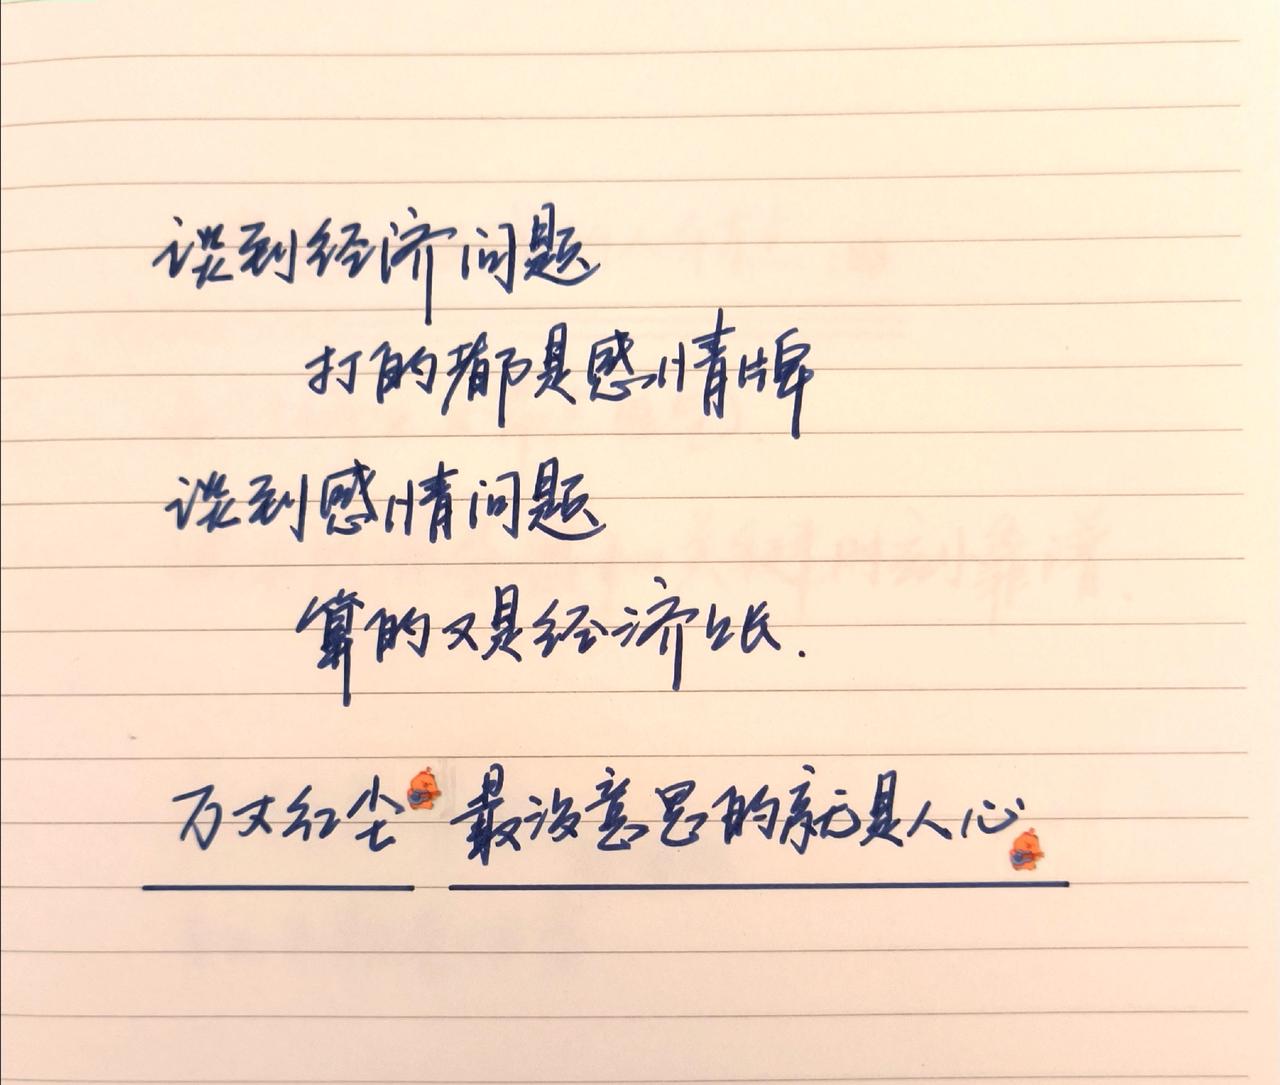 谈到经济问题
打的都是感情牌
谈到感情问题
算的又是经济账.
万丈红尘 最没意思的就是人心